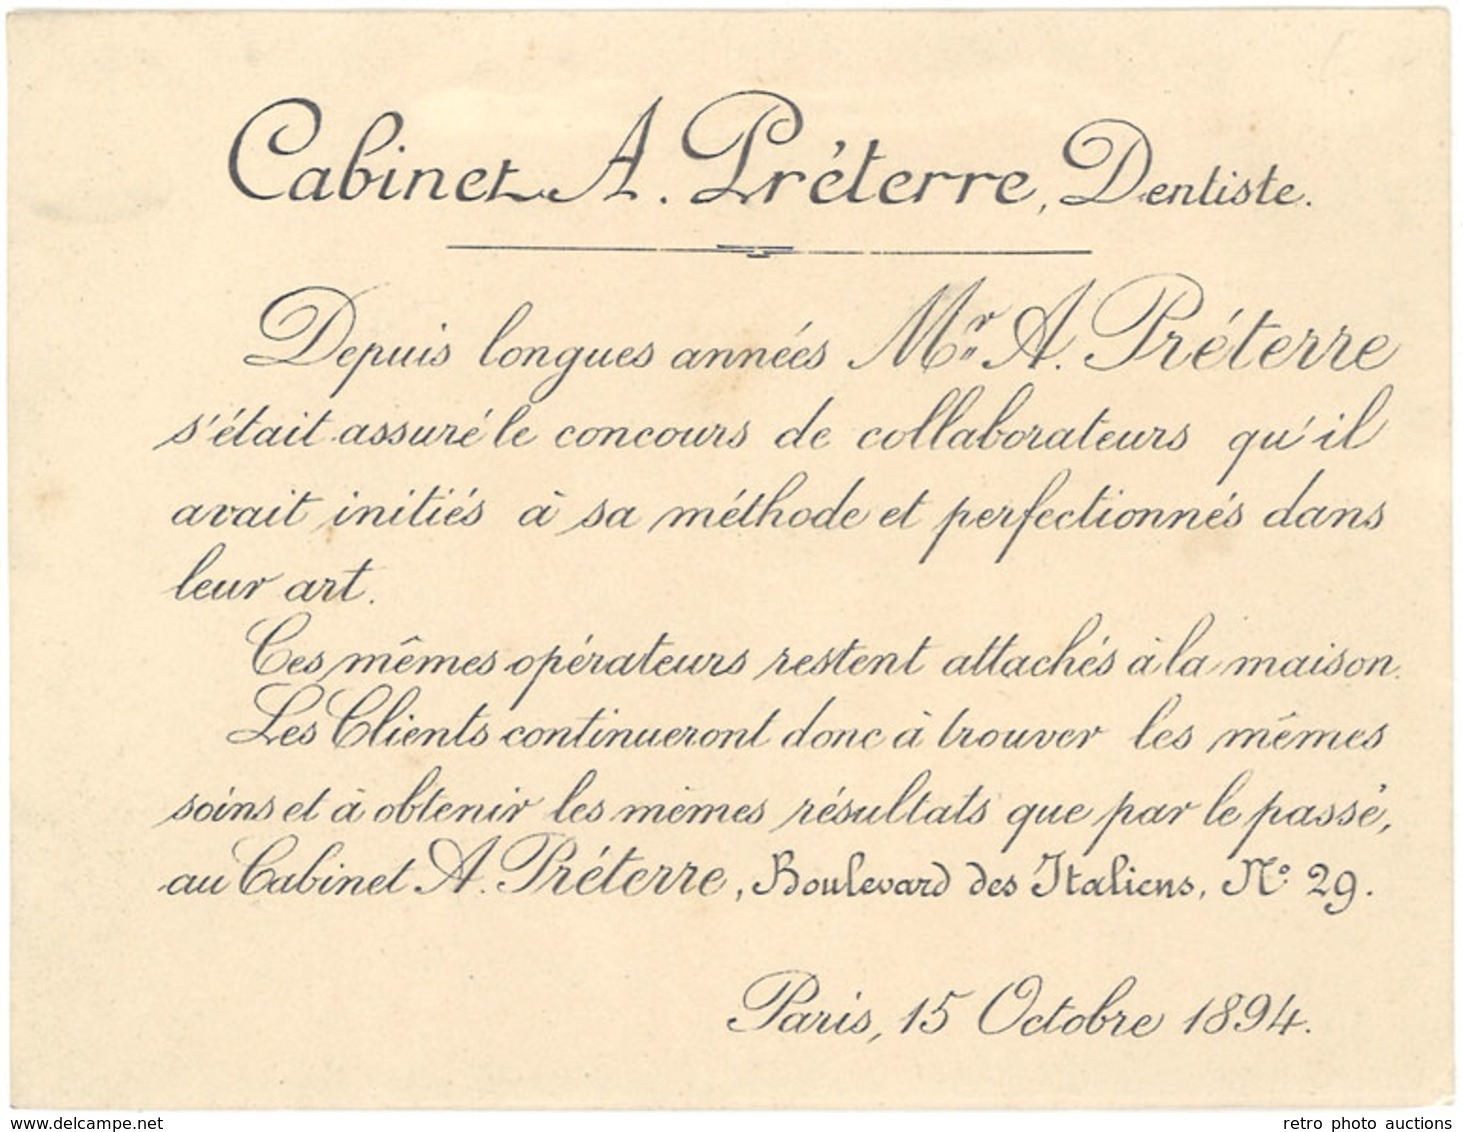 Cabinet A. Préterre, Dentiste.
Depuis longues années Mr A. Préterre
s'était assuré le concours de collaborateurs qu'il
avait initiés à sa méthode et perfectionnés dans
leur art.
Ces mêmes opérateurs restent attachés à la maison.
Les Clients continueront donc à trouver les mêmes
soins et à obtenir les mêmes résultats que par le passé,
au Cabinet A. Préterre, Boulevard des Italiens, No. 29.
Paris, 15 Octobre 1894.
www.delcampe.net
retro photo auctions